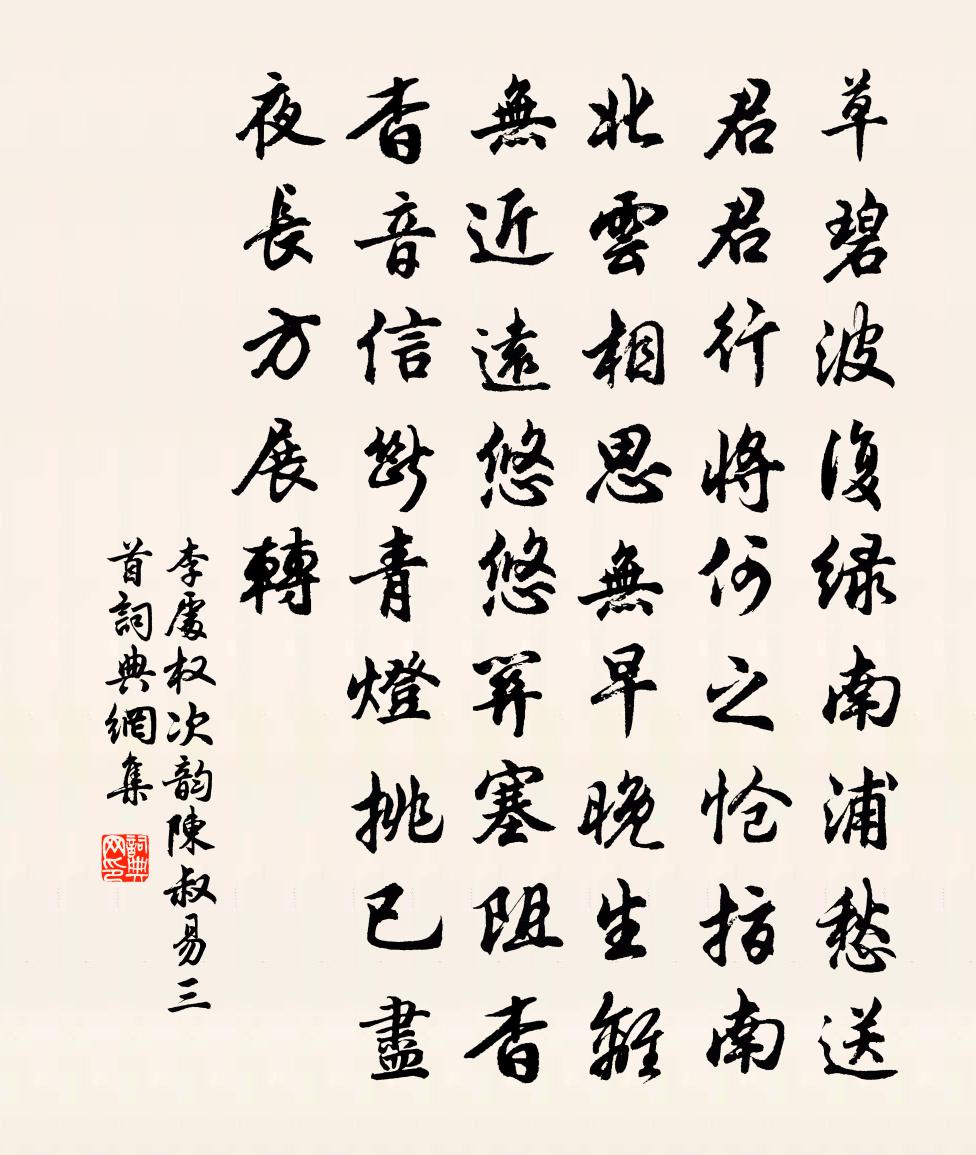 草碧波復緑南浦愁送
君君行將何之愴指南
北雲相思無早晚生離
無近遠悠悠關塞阻杳
杳音信斷青燈挑已盡
夜長方展轉
李處权次韵陳叔易三
首詞典網集
詞典网印